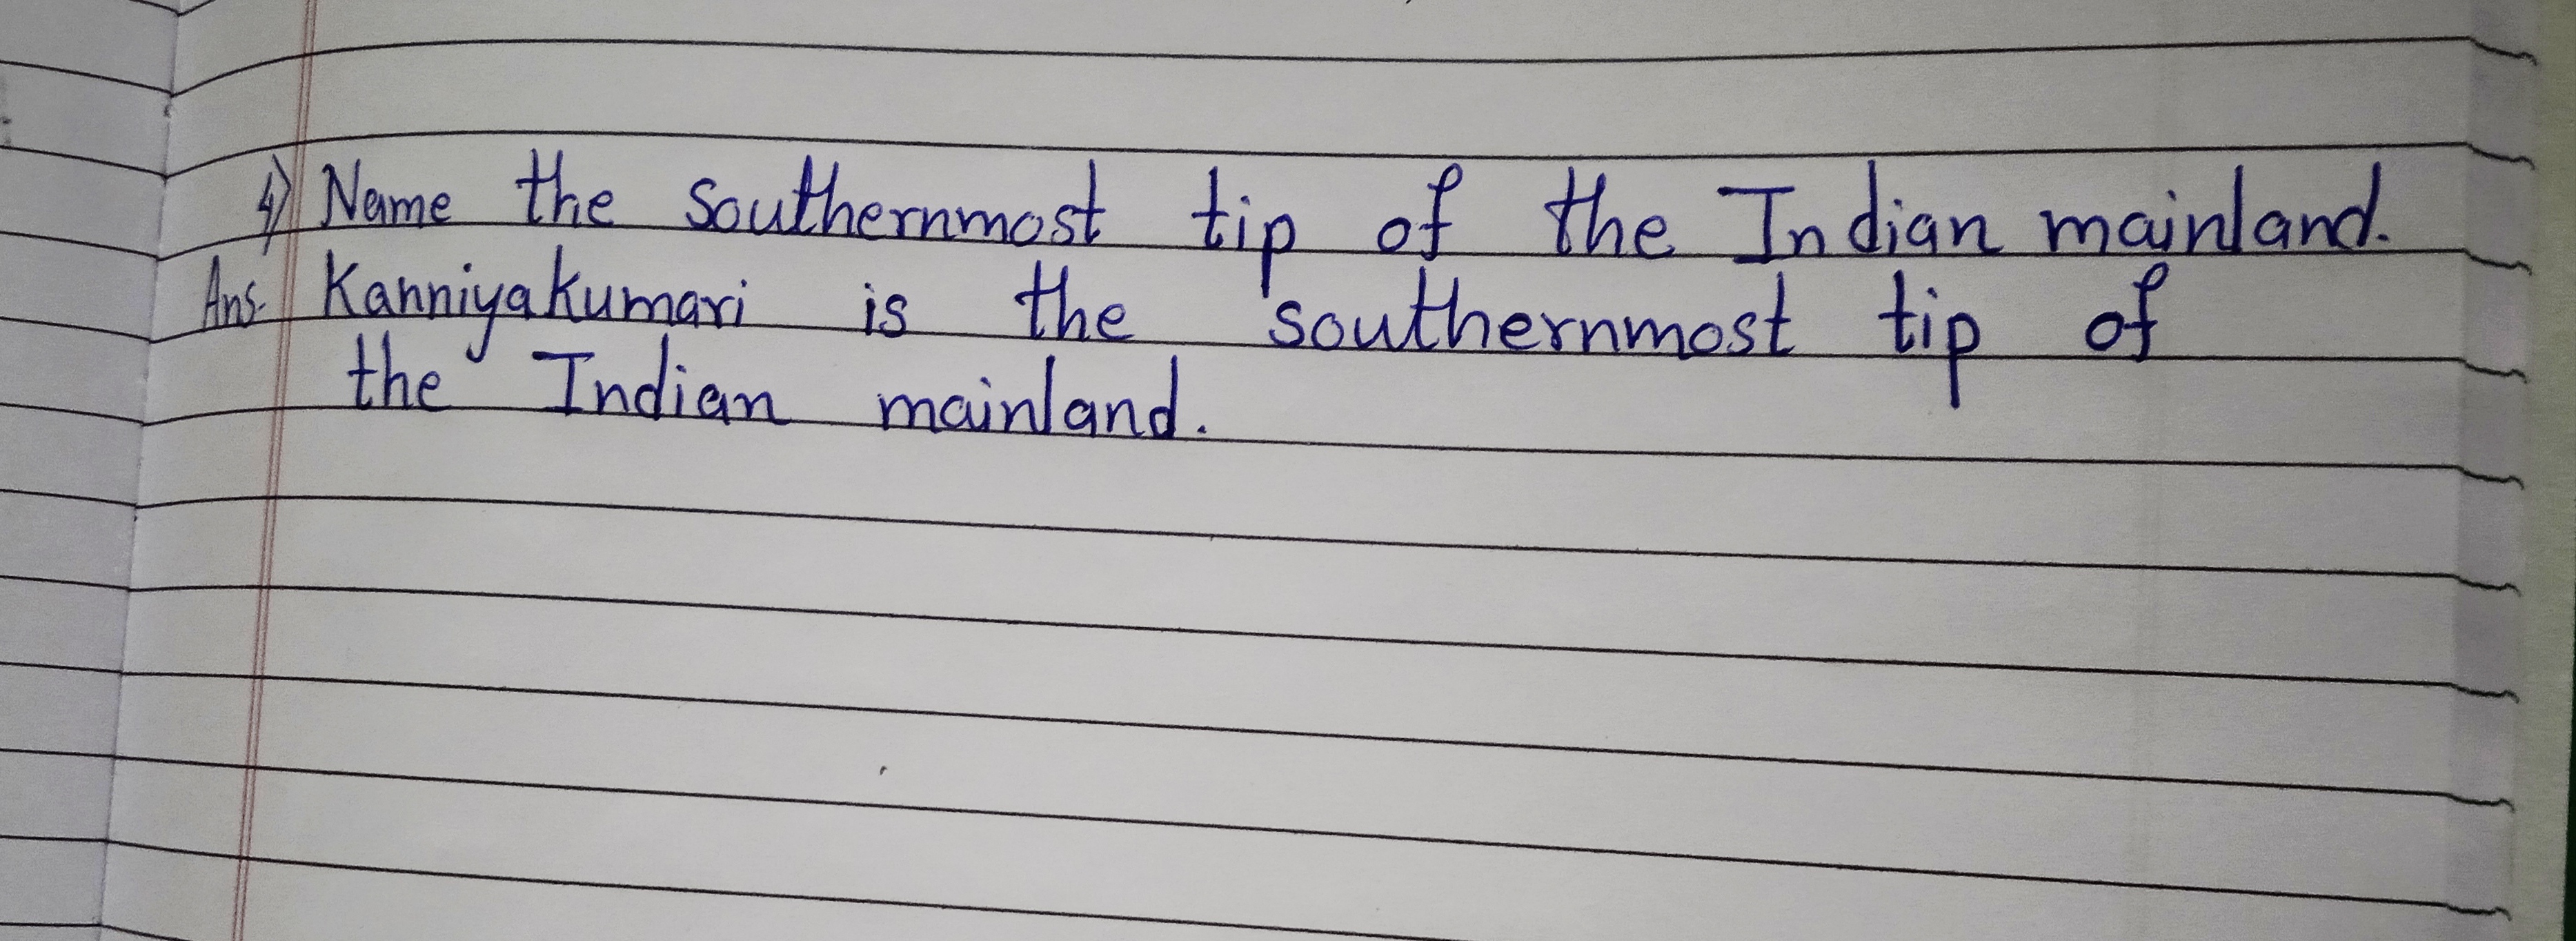 4) Name the southernmost tip of the Indian mainland.
Ans. Kanniyakumari is the southernmost tip of
the Indian mainland.